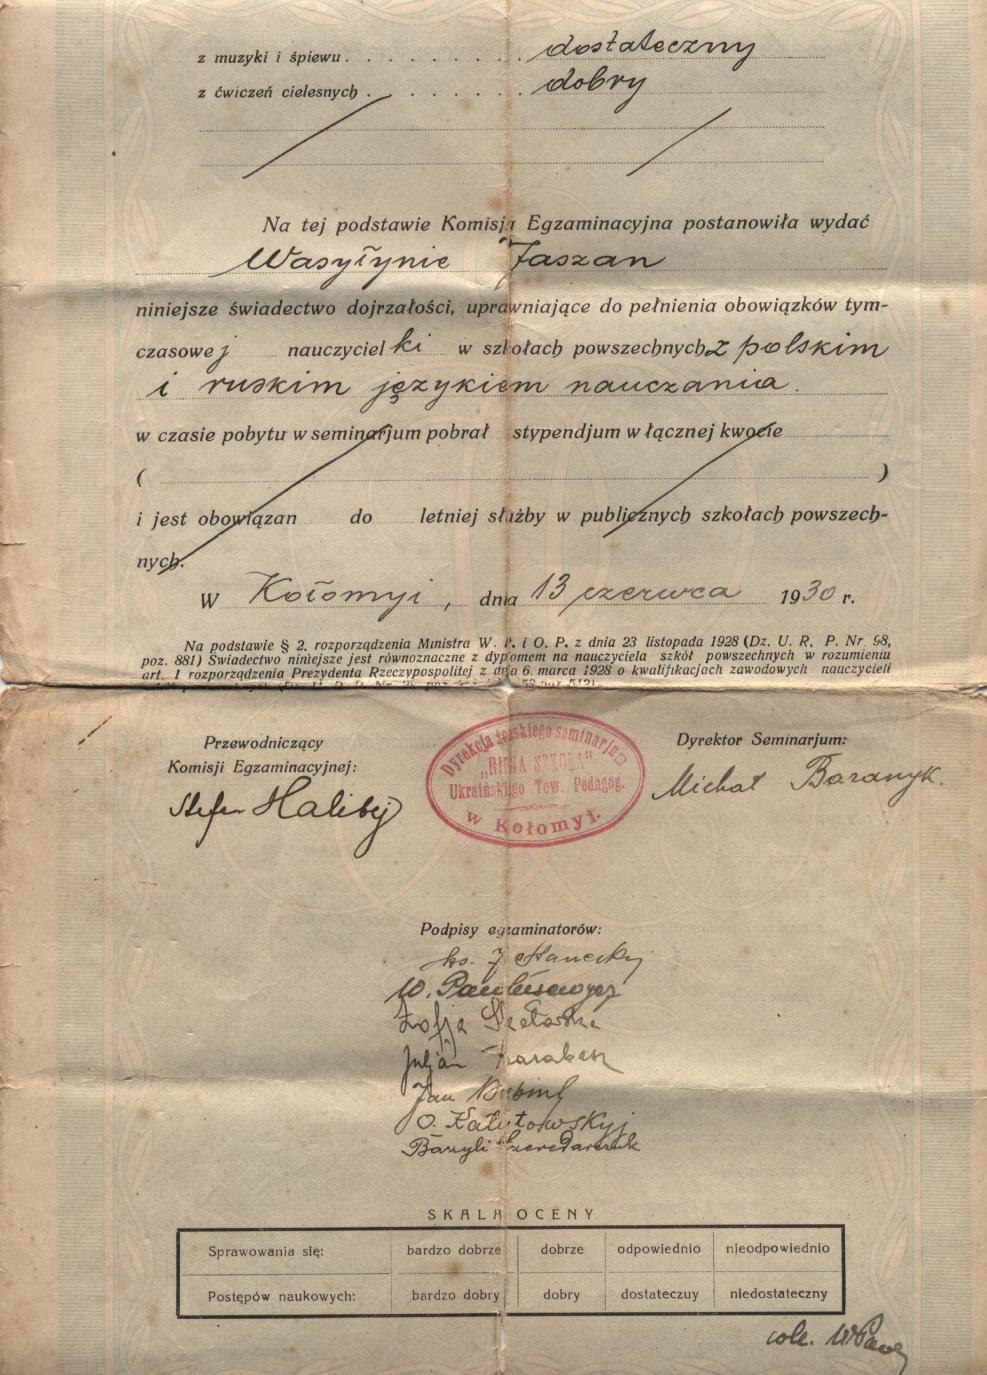 z muzyki i śpiewu . . . . . . . . . dostateczny
z ćwiczeń cielesnych . . . . . . . dobry
Na tej podstawie Komisja Egzaminacyjna postanowiła wydać
Wasyłynie Jaszan
niniejsze świadectwo dojrzałości, uprawniające do pełnienia obowiązków tym-
czasowej nauczycielki w szkołach powszechnych z polskim
i ruskim językiem nauczania.
w czasie pobytu w seminarjum pobrał stypendjum w łącznej kwocie
( )
i jest obowiązan do letniej służby w publicznych szkołach powszech-
nych.
W Kołomyi, dnia 13 czerwca 1930 r.
Na podstawie § 2. rozporządzenia Ministra W. P. i O. P. z dnia 23 listopada 1928 (Dz. U. R. P. Nr. 98,
poz. 881) Świadectwo niniejsze jest równoznaczne z dyplomem na nauczyciela szkół powszechnych w rozumieniu
art. 1 rozporządzenia Prezydenta Rzeczypospolitej z dnia 6. marca 1928 o kwalifikacjach zawodowych nauczycieli
Przewodniczący
Komisji Egzaminacyjnej:
Stefan Halibej
Dyrekcja żeńskiego seminarjum
„RIDNA SZKOŁA"
Ukraińskiego Tow. Pedagog.
w Kołomyi.
Dyrektor Seminarjum:
Michał Baranyk.
Podpisy egzaminatorów:
ks. J.
W.
Zofja
Julian
Jan
O.
Bazyli
SKALA OCENY
Sprawowania się: bardzo dobrze dobrze odpowiednio nieodpowiednio
Postępów naukowych: bardzo dobry dobry dostateczuy niedostateczny